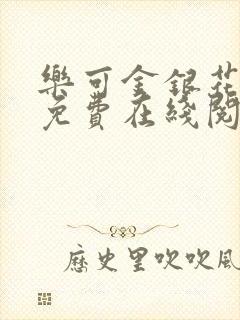 樂可金銀花
免費在綫閱
歷史里吹吹風